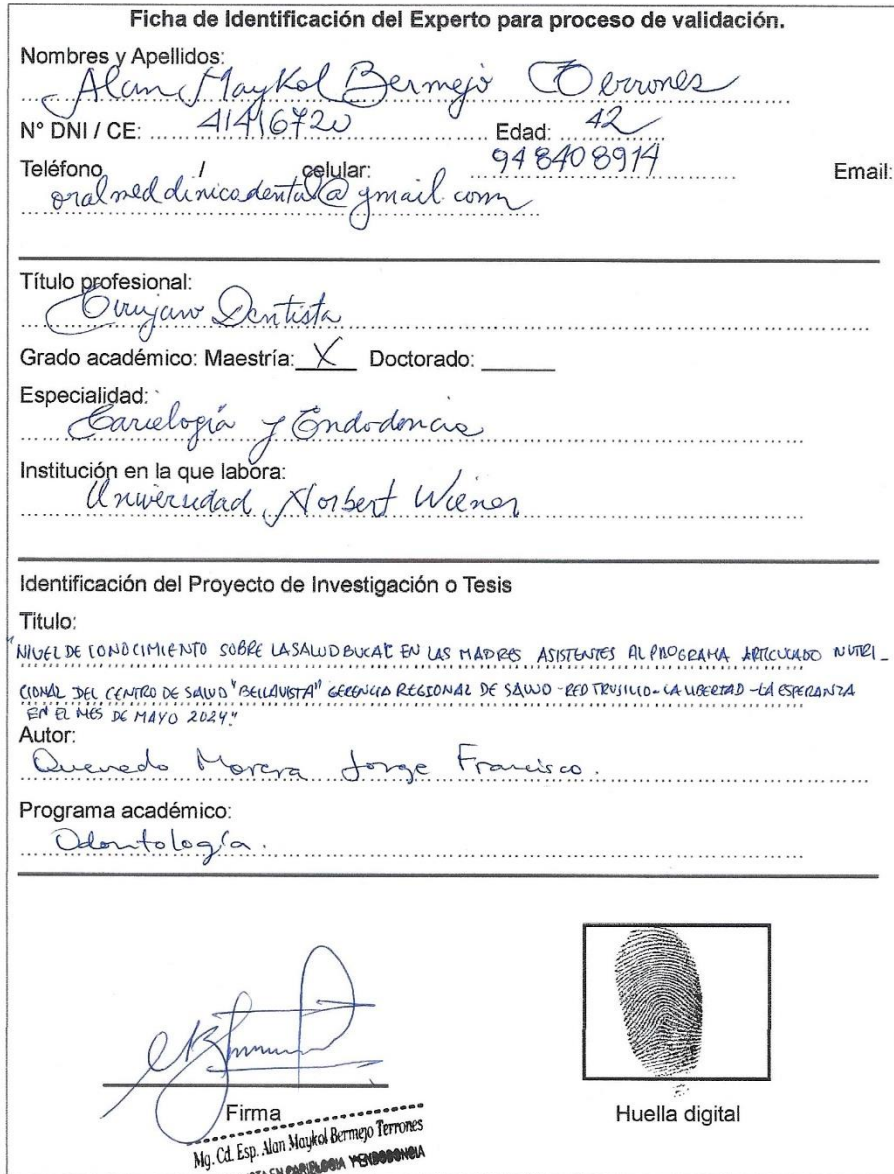 Ficha de Identificación del Experto para proceso de validación.
Nombres y Apellidos:
Alan Maykol Bermejo Terrones
N° DNI / CE: 41416720 Edad: 42
Teléfono / celular: 948408914 Email:
oralmedclinicadental@gmail.com
Título profesional:
Cirujano Dentista
Grado académico: Maestría: X Doctorado:
Especialidad:
Cariología y Endodoncia
Institución en la que labora:
Universidad Norbert Wiener
Identificación del Proyecto de Investigación o Tesis
Titulo:
"NIVEL DE CONOCIMIENTO SOBRE LA SALUD BUCAL EN LAS MADRES ASISTENTES AL PROGRAMA ARTICULADO NUTRI-
CIONAL DEL CENTRO DE SALUD "BELLAVISTA" GERENCIA REGIONAL DE SALUD -RED TRUJILLO-LA LIBERTAD -LA ESPERANZA
EN EL MES DE MAYO 2024"
Autor:
Quevedo Morera Jorge Francisco.
Programa académico:
Odontología.
Firma
Huella digital
Mg. Cd. Esp. Alan Maykol Bermejo Terrones
EN CARIELOGIA Y ENDODONCIA